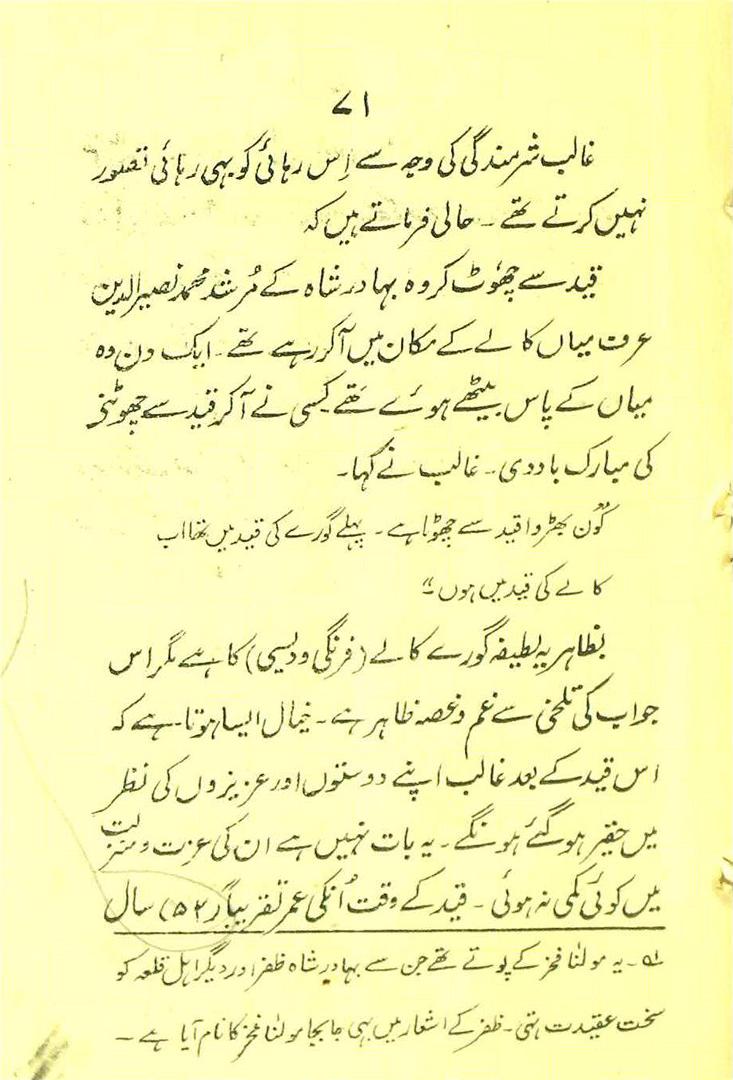 ۷۱
غالب شرمندگی کی وجہ سے اِس رہائی کو بہی رہائی تصور
نہیں کرتے تھے ۔ حالی فرماتے ہیں کہ
قید سے چھُوٹ کر وہ بہادر شاہ کے مُرشد محمد نصیرالدین
عرف میاں کالے کے مکان میں آکر رہے تھے ۔ ایک دن وہ
میاں کے پاس بیٹھے ہوئے تھے کسی نے آکر قید سے چھوٹنے
کی مبارک باد دی ۔ غالب نے کہا ۔
"کون بھڑوا قید سے چھوٹا ہے ۔ پہلے گورے کی قید میں تھا اب
کالے کی قید میں ہوں"
بظاہر یہ لطیفہ گورے کالے (فرنگی و دیسی) کا ہے مگر اس
جواب کی تلخی سے غم و غصہ ظاہر ہے ۔ خیال ایسا ہوتا ہے کہ
اس قید کے بعد غالب اپنے دوستوں اور عزیزوں کی نظر
میں حقیر ہو گئے ہونگے ۔ یہ بات نہیں ہے ان کی عزت و منزلت
میں کوئی کمی نہ ہوئی ۔ قید کے وقت اُنکی عمر تقریباً (۵۲) سال
لہ ۔ یہ مولٰنا فخر کے پوتے تھے جن سے بہادر شاہ ظفر اور دیگر اہل قلعہ کو
سخت عقیدت تہی ۔ ظفر کے اشعار میں بہی جابجا مولٰنا فخر کا نام آیا ہے ۔